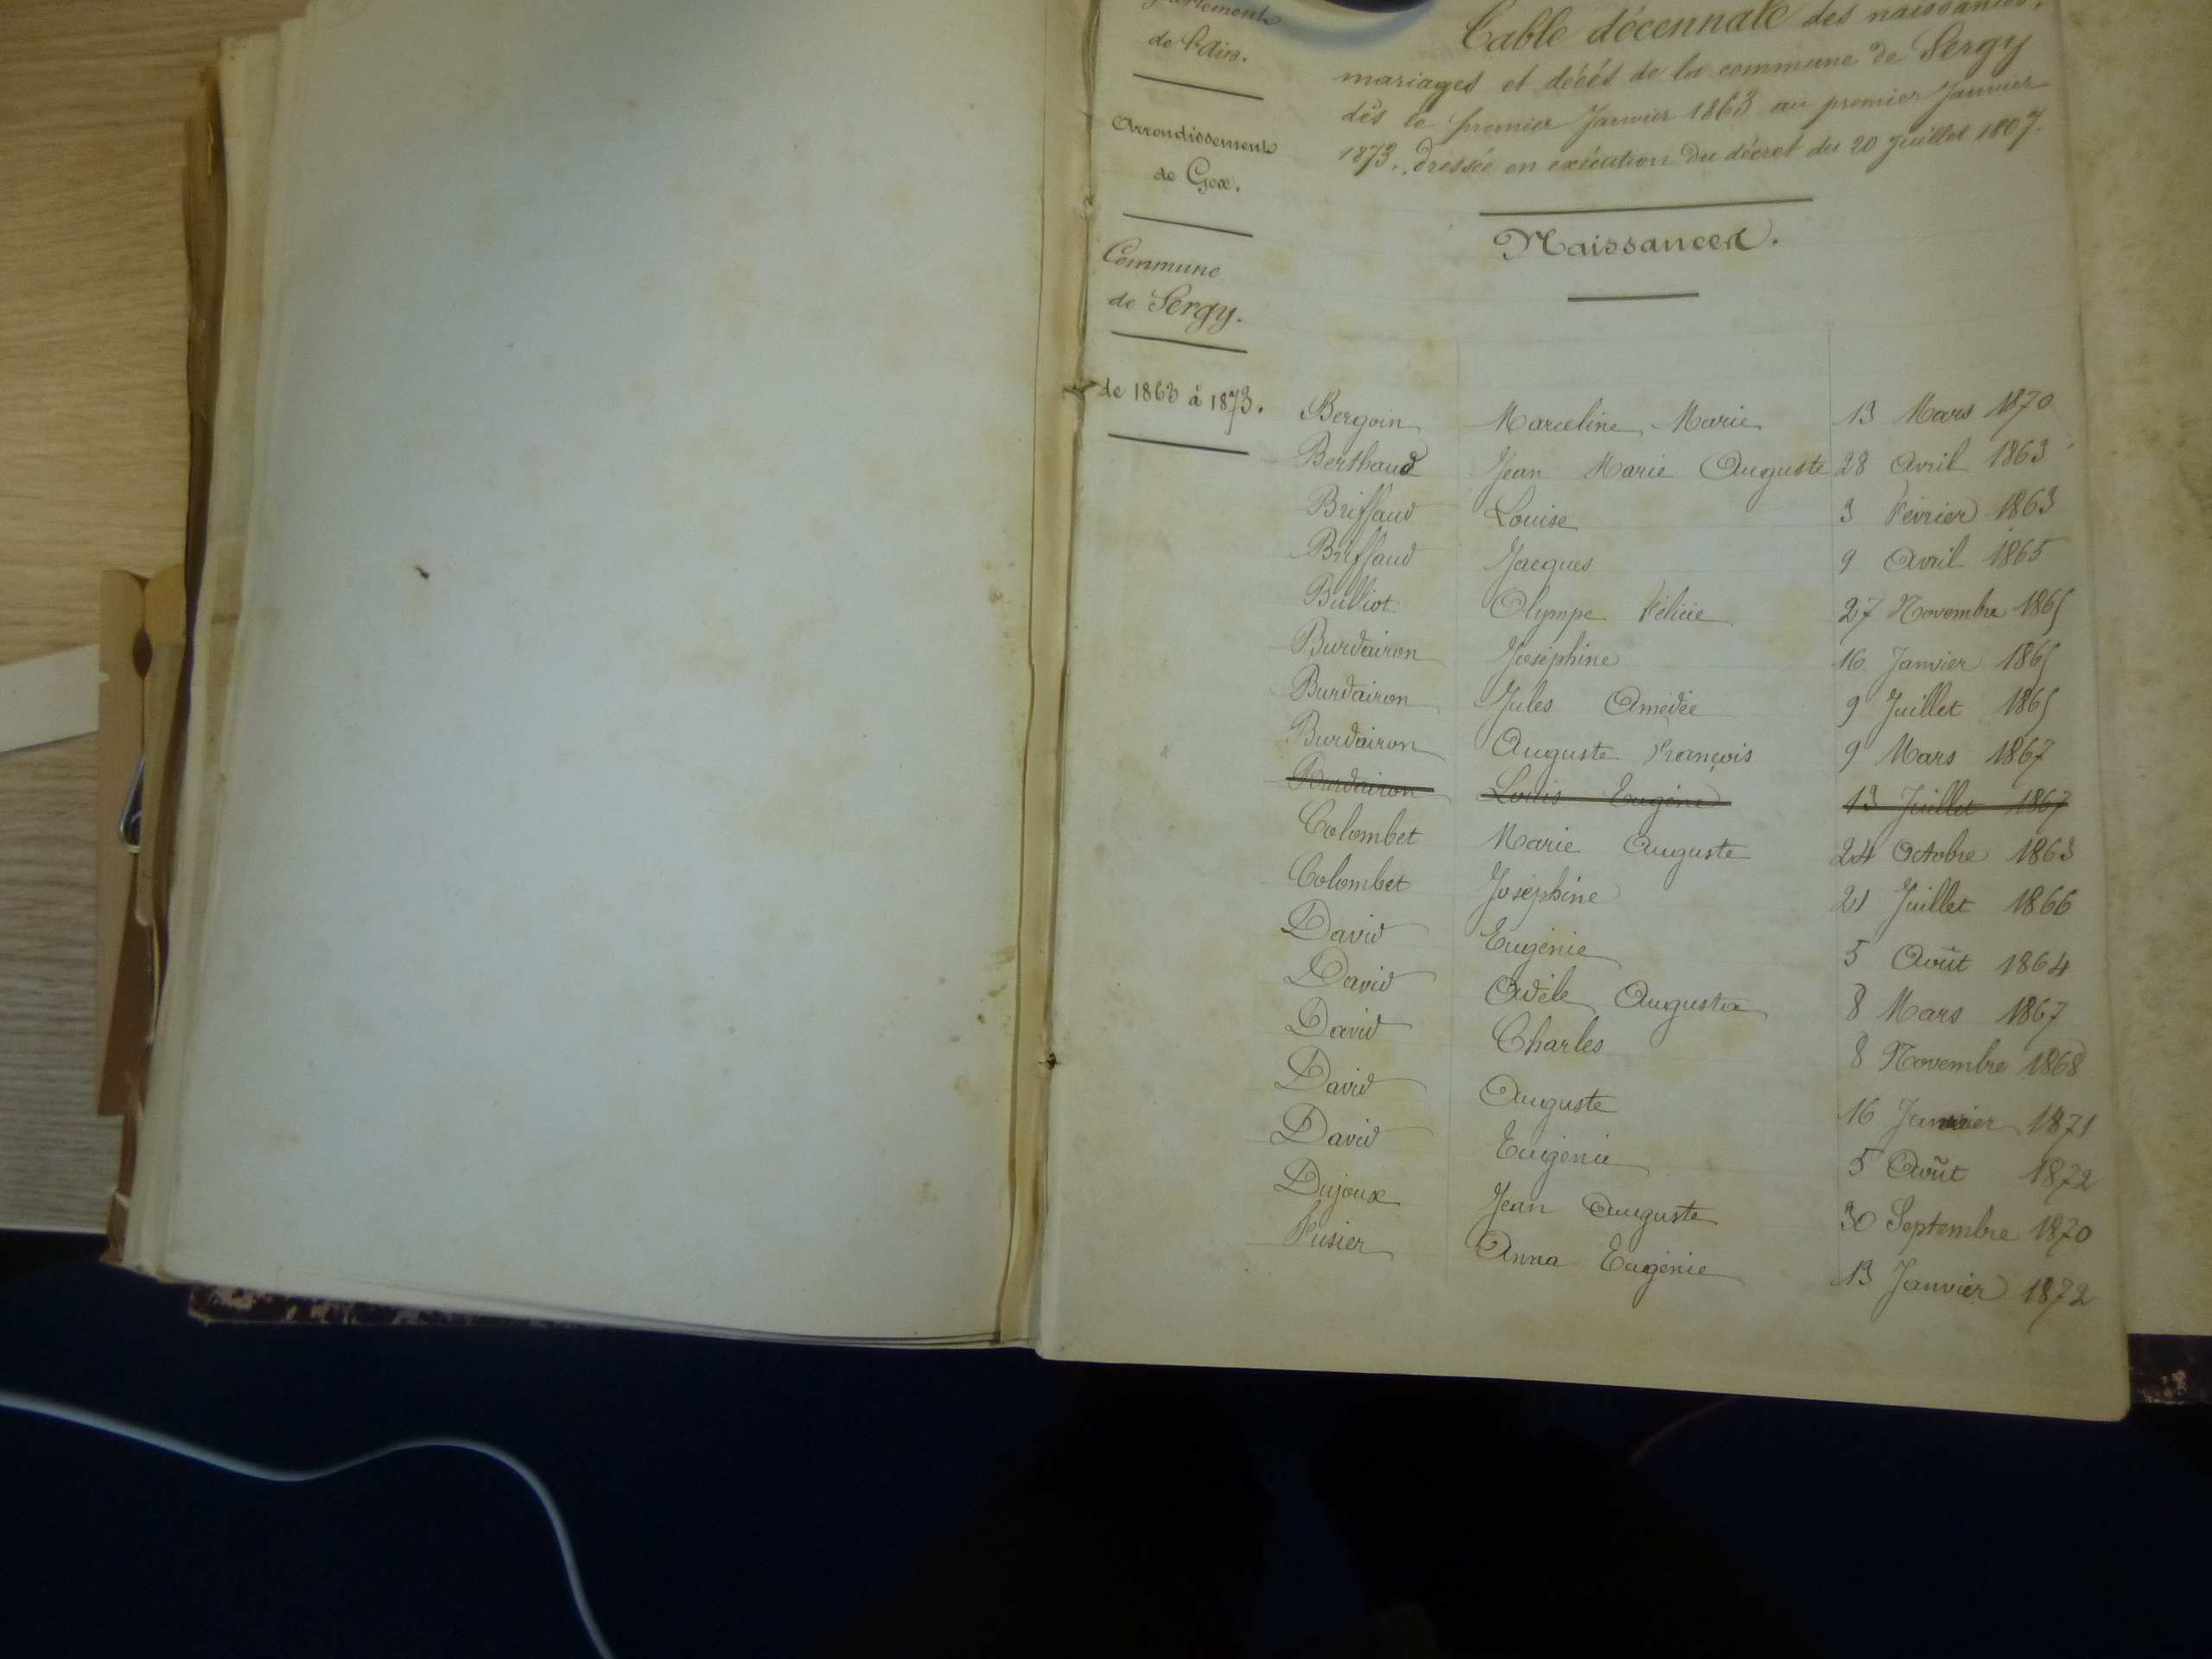 de l'Ain.
Arrondissement
de Gex.
Commune
de Sergy.
de 1863 à 1873.
Table décennale des naissances,
mariages et décés de la commune de Sergy
dès le premier Janvier 1863 au premier Janvier
1873, dressée en exécution du décret du 20 Juillet 1807.
Naissances.
Bergoin Marceline Marie 13 Mars 1870
Berthaud Jean Marie Auguste 28 Avril 1863
Briffaud Louise 3 Février 1863
Briffaud Jacques 9 Avril 1865
Bulliot Olympe Félicie 27 Novembre 1865
Burdairon Joséphine 16 Janvier 1865
Burdairon Jules Amédée 9 Juillet 1865
Burdairon Auguste François 9 Mars 1867
Burdairon Louis Eugène 13 Juillet 1867
Colombet Marie Auguste 24 Octobre 1863
Colombet Joséphine 21 Juillet 1866
David Eugénie 5 Août 1864
David Adèle Augusta 8 Mars 1867
David Charles 8 Novembre 1868
David Auguste 16 Janvier 1871
David Eugénie 5 Août 1872
Dujoux Jean Auguste 30 Septembre 1870
Fusier Anna Eugénie 13 Janvier 1872